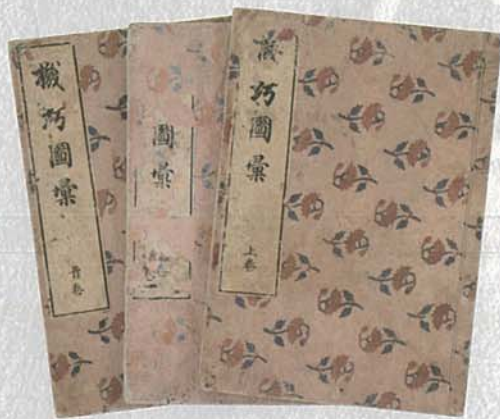 機巧圖彙
首卷
圖彙
機巧圖彙
上卷